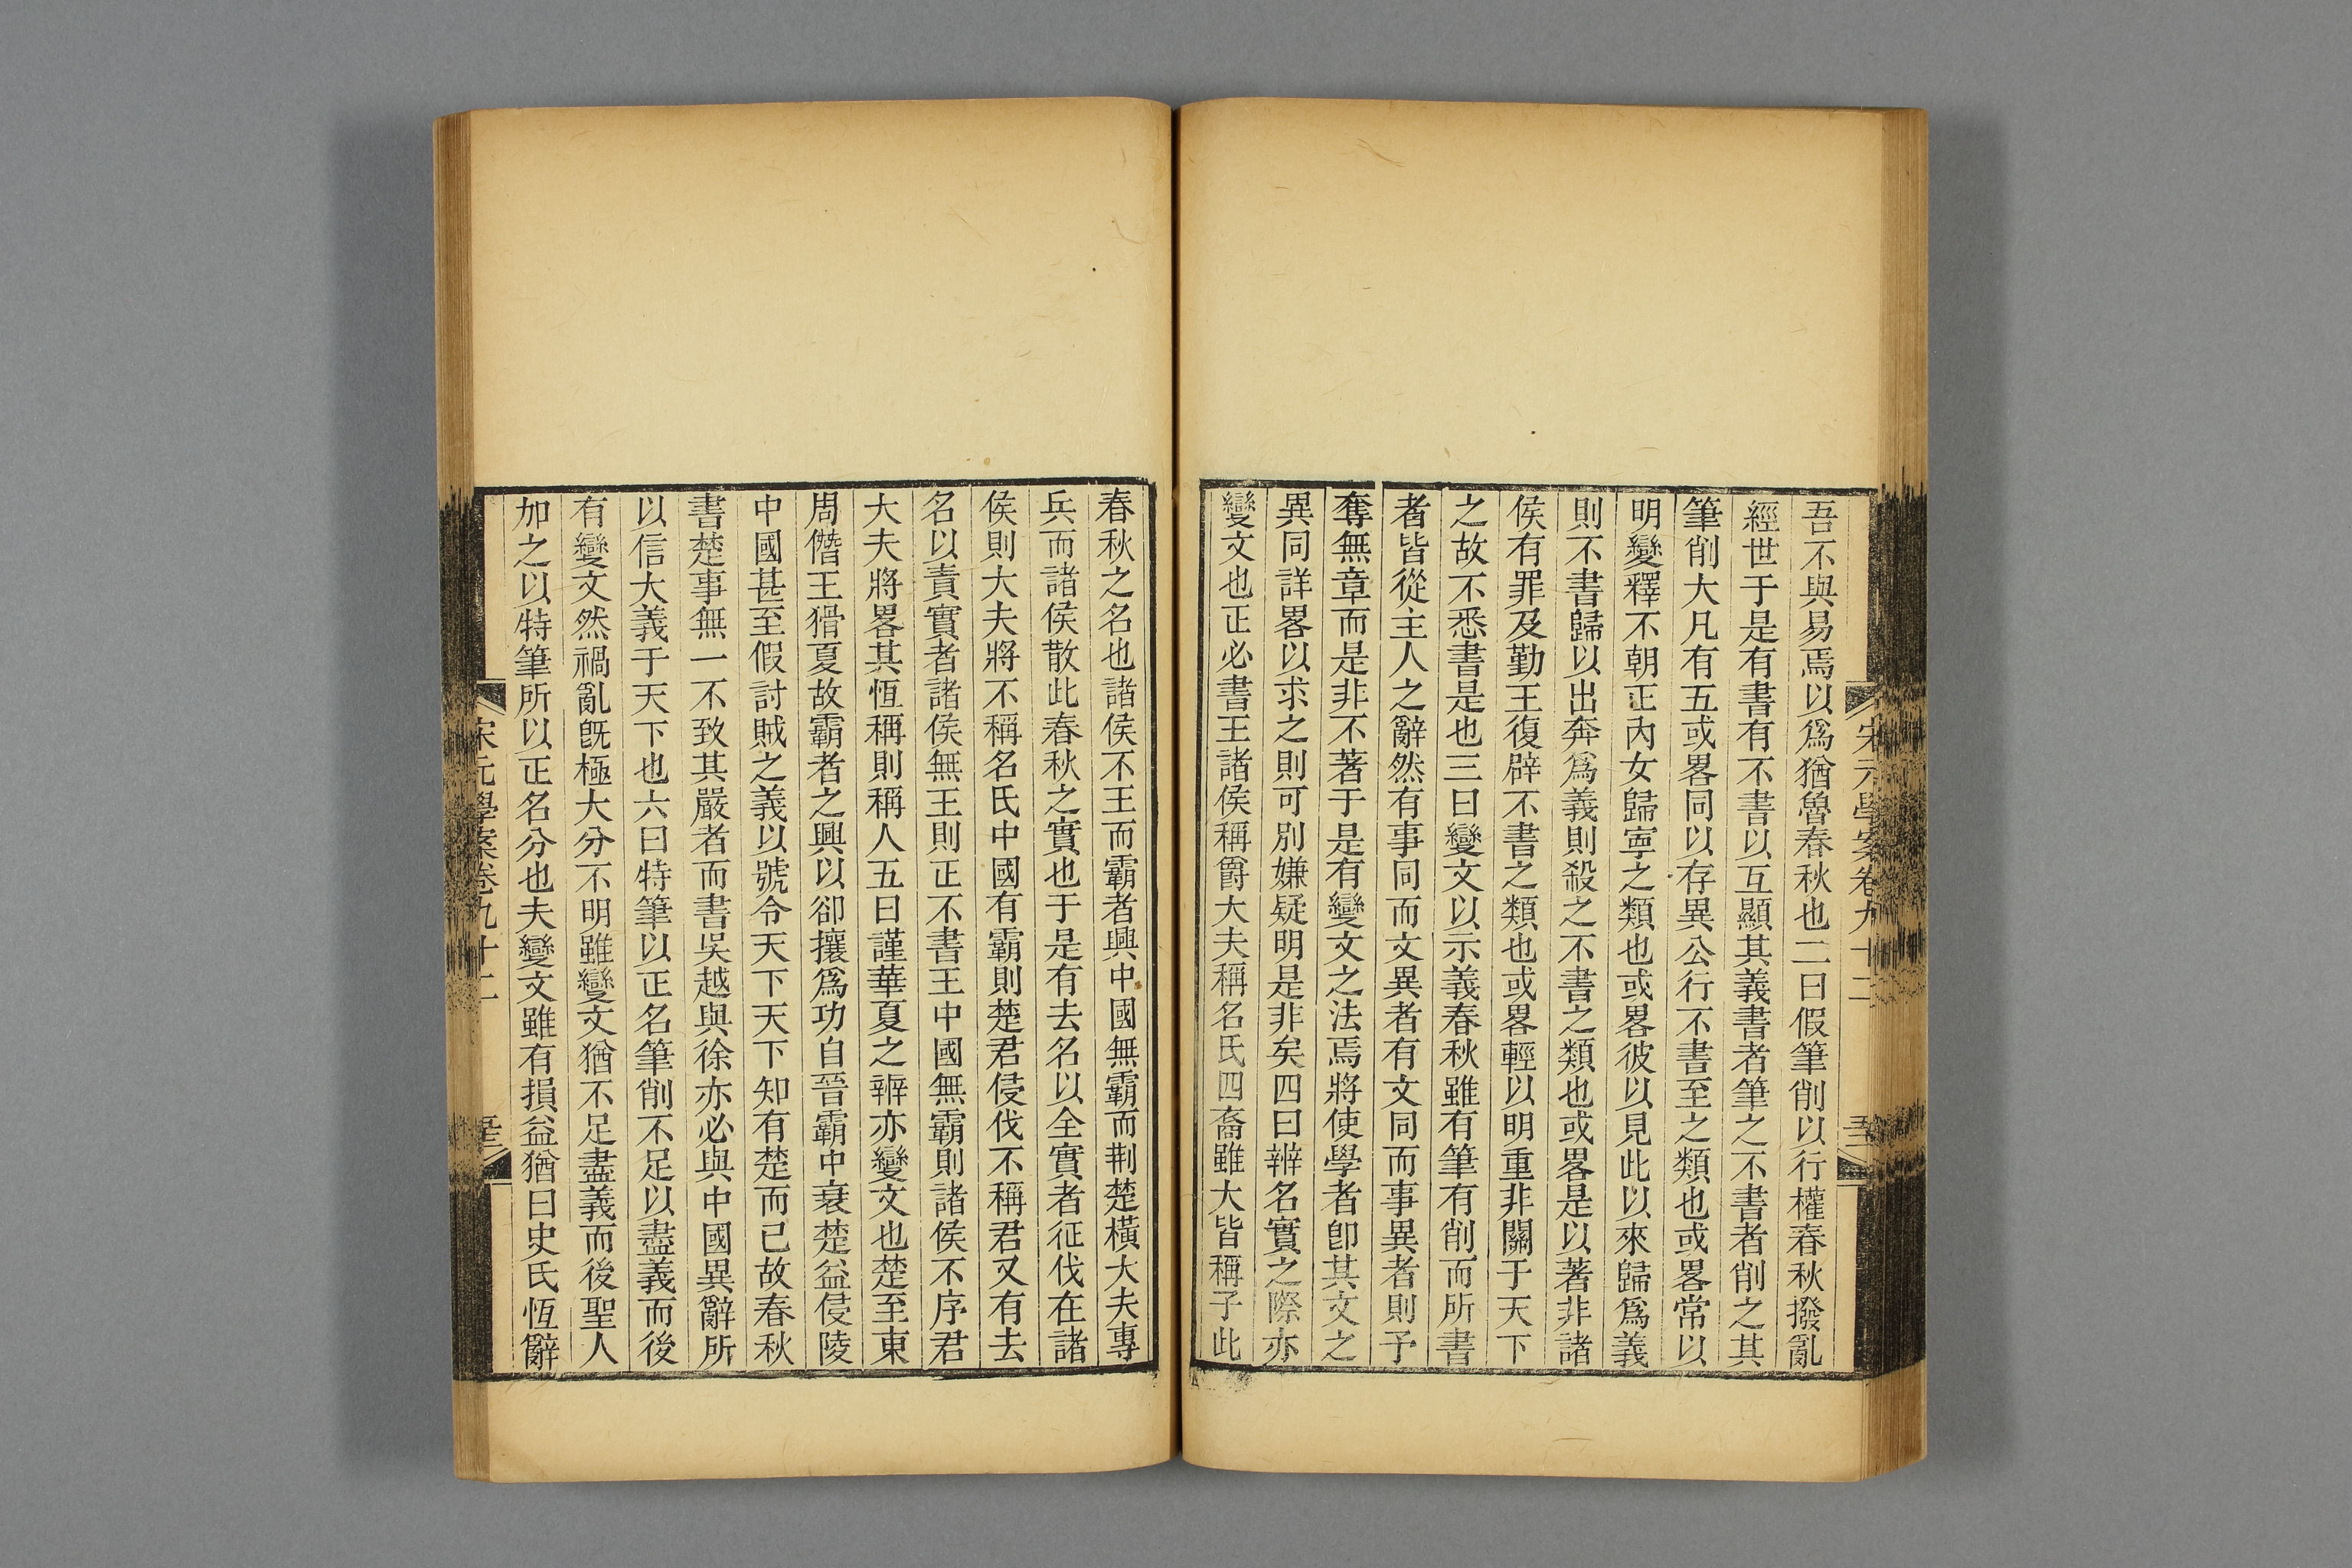 吾不與易焉以爲猶魯春秋也二曰假筆削以行權春秋撥亂
經世于是有書有不書以互顯其義書者筆之不書者削之其
筆削大凡有五或畧同以存異公行不書至之類也或畧常以
明變釋不朝正內女歸寧之類也或畧彼以見此以來歸爲義
則不書歸以出奔爲義則殺之不書之類也或畧是以著非諸
侯有罪及勤王復辟不書之類也或畧輕以明重非關于天下
之故不悉書是也三曰變文以示義春秋雖有筆有削而所書
者皆從主人之辭然有事同而文異者有文同而事異者則予
奪無章而是非不著于是有變文之法焉將使學者卽其文之
異同詳畧以求之則可別嫌疑明是非矣四曰辨名實之際亦
變文也正必書王諸侯稱爵大夫稱名氏四裔雖大皆稱子此
宋元學案卷九十二
春秋之名也諸侯不王而霸者興中國無霸而荆楚橫大夫專
兵而諸侯散此春秋之實也于是有去名以全實者征伐在諸
侯則大夫將不稱名氏中國有霸則楚君侵伐不稱君又有去
名以責實者諸侯無王則正不書王中國無霸則諸侯不序君
大夫將畧其恆稱則稱人五曰謹華夏之辨亦變文也楚至東
周僭王猾夏故霸者之興以卻攘爲功自晉霸中衰楚益侵陵
中國甚至假討賊之義以號令天下天下知有楚而已故春秋
書楚事無一不致其嚴者而書吳越與徐亦必與中國異辭所
以信大義于天下也六曰特筆以正名筆削不足以盡義而後
有變文然禍亂旣極大分不明雖變文猶不足盡義而後聖人
加之以特筆所以正名分也夫變文雖有損益猶曰史氏恆辭
宋元學案卷九十二